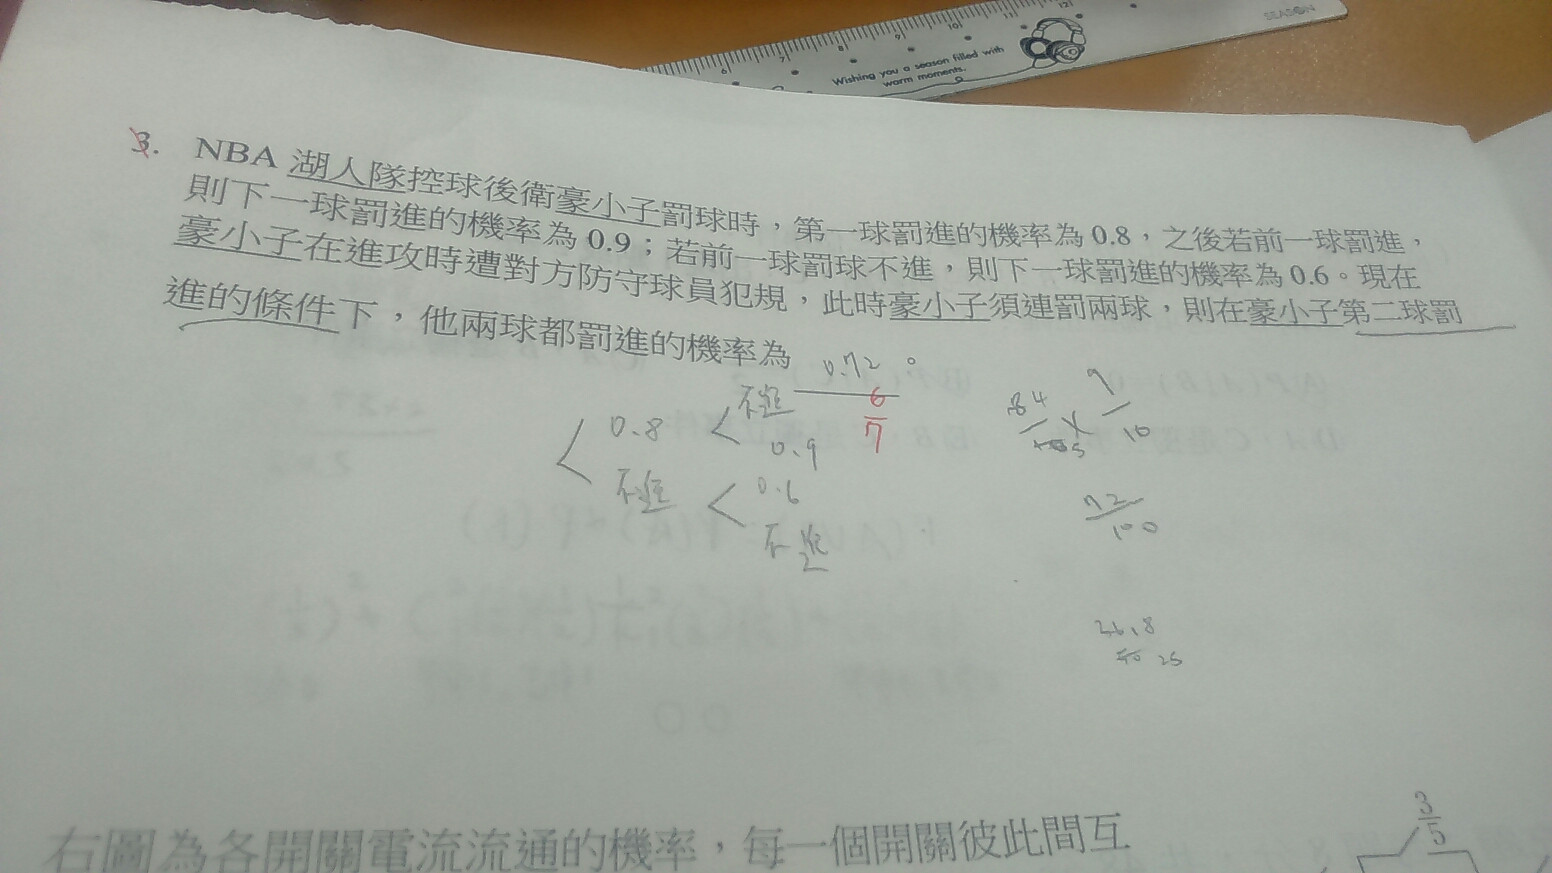 SEASON
Wishing you a season filled with
warm moments.
3. NBA 湖人隊控球後衛豪小子罰球時，第一球罰進的機率為 0.8，之後若前一球罰進，
則下一球罰進的機率為 0.9；若前一球罰球不進，則下一球罰進的機率為 0.6。現在
豪小子在進攻時遭對方防守球員犯規，此時豪小子須連罰兩球，則在豪小子第二球罰
進的條件下，他兩球都罰進的機率為 0.72 。
6
7
0.8 不進
0.9
不進 0.6
不進
84 9
10
72
100
右圖為各開關電流流通的機率，每一個開關彼此間互
3
5